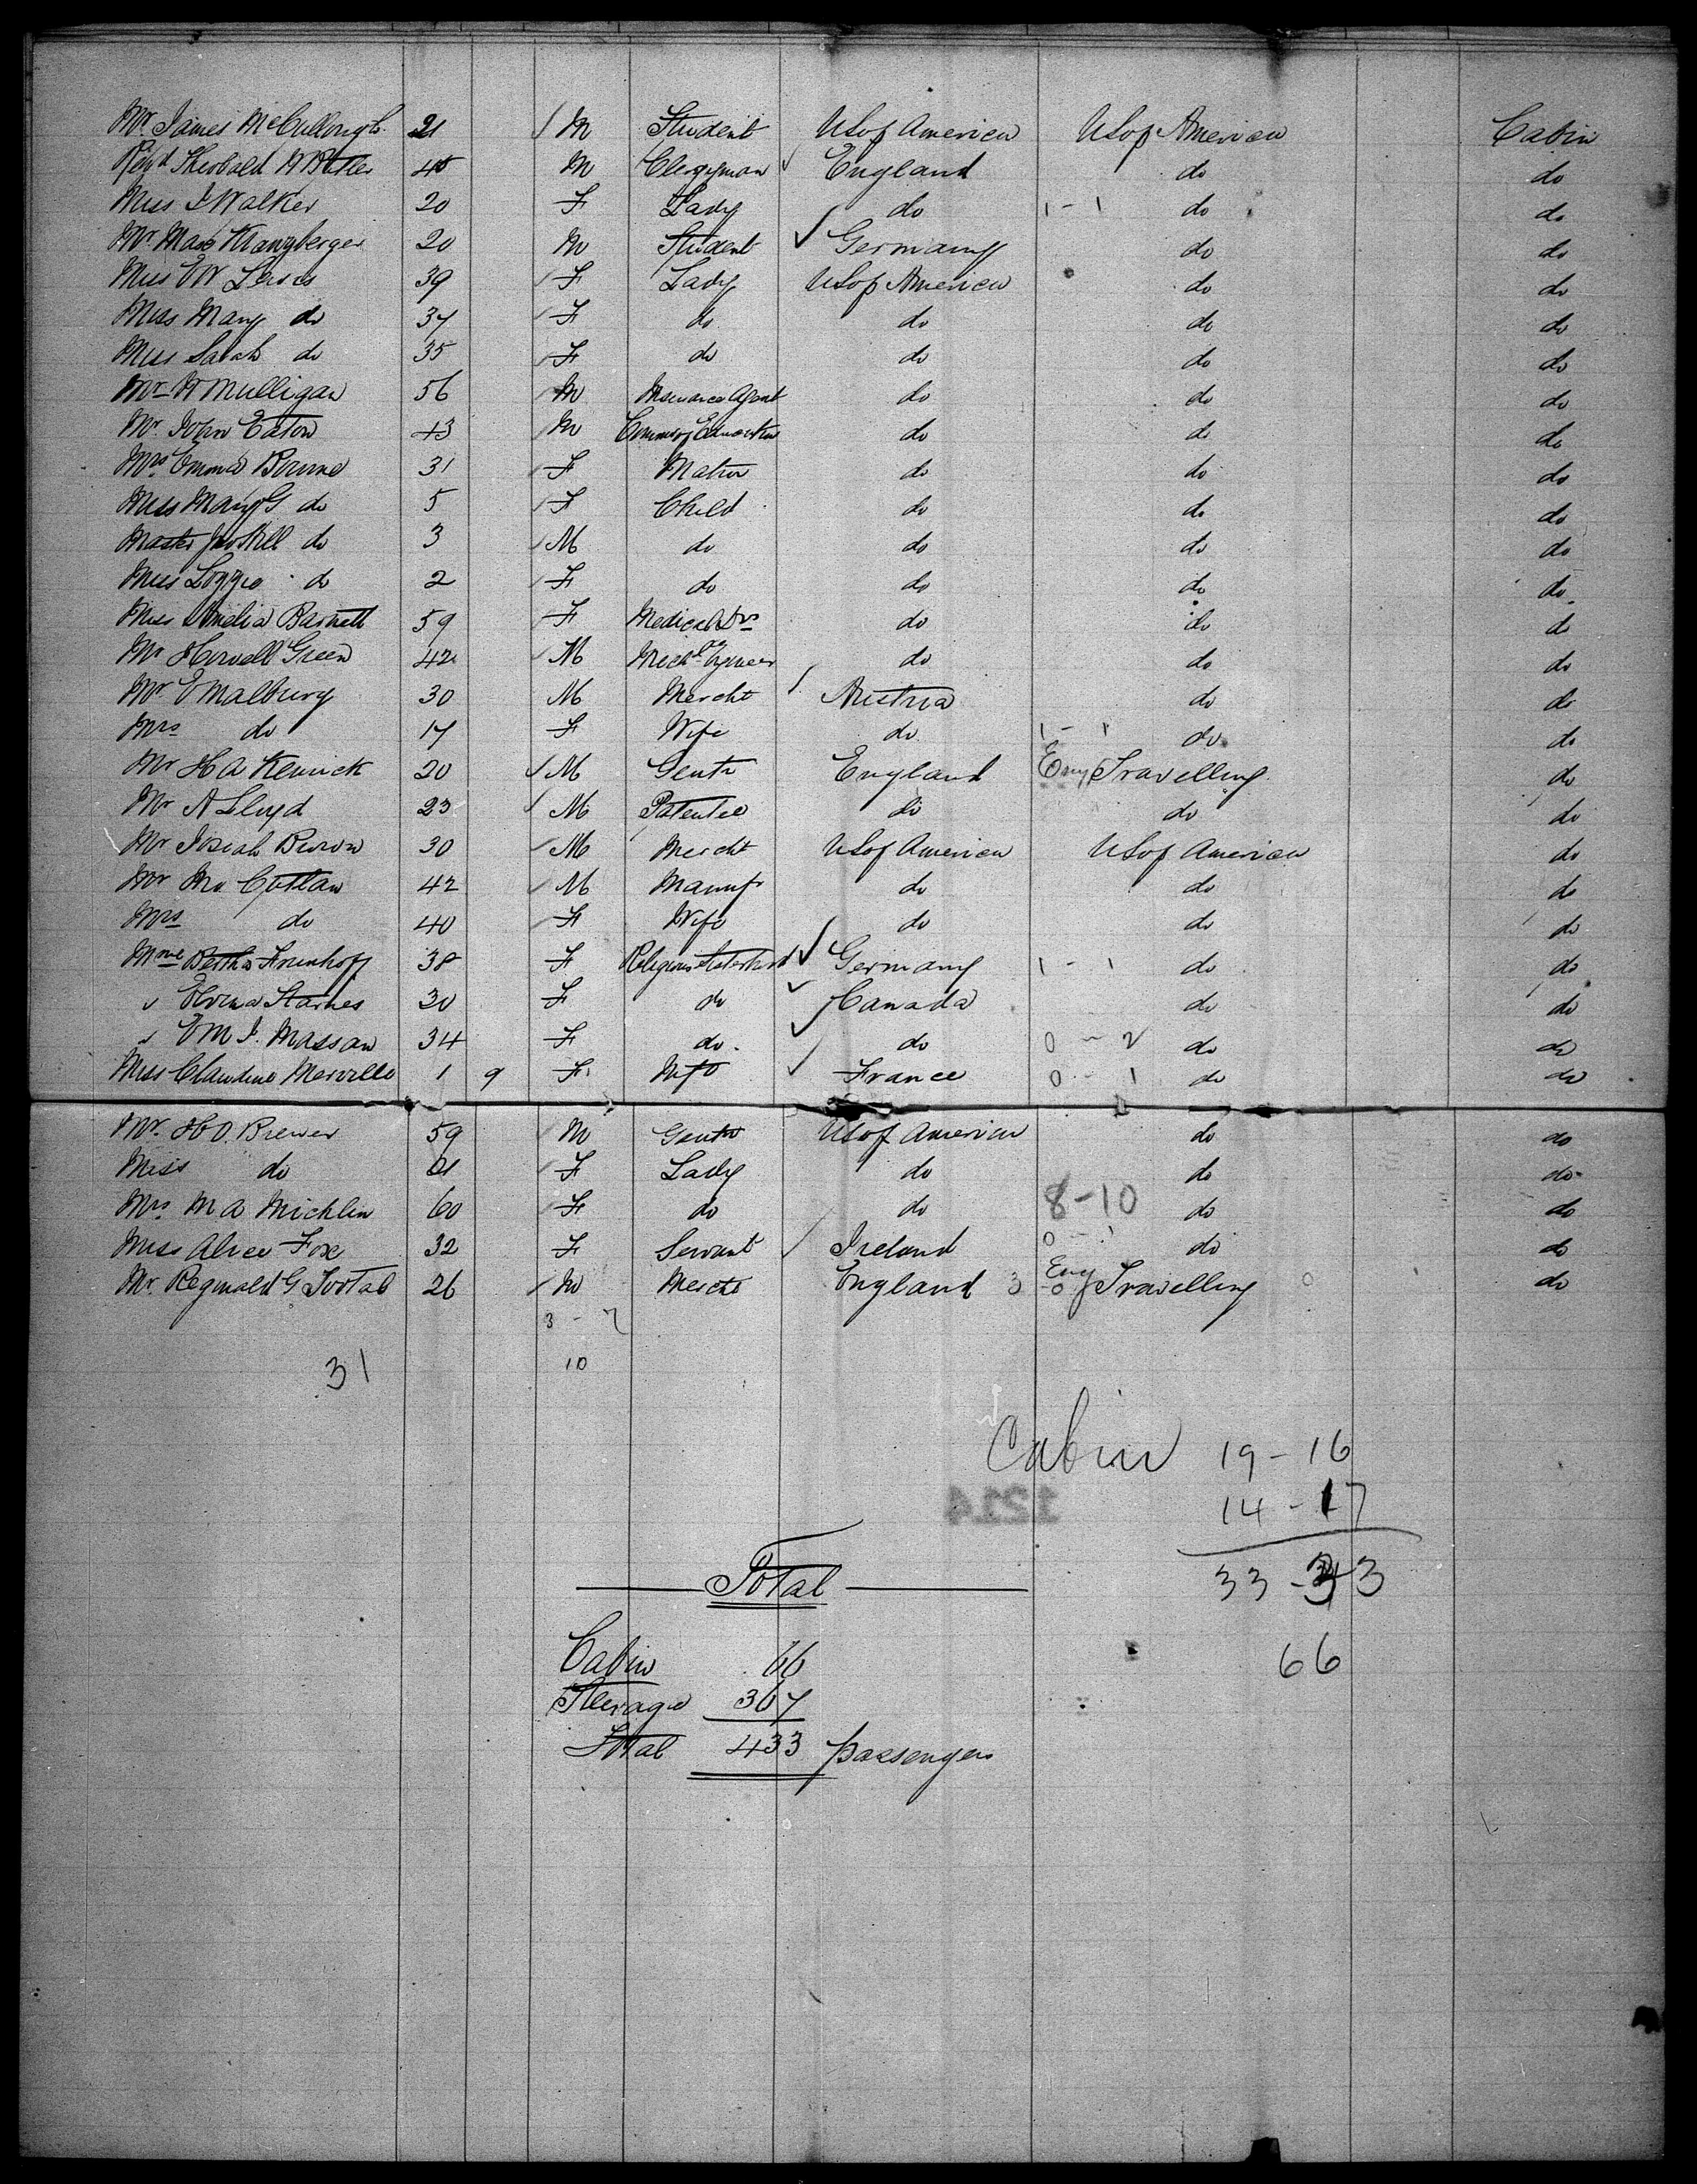 Mr. James McCullough 21 M Student U S of America U S of America Cabin
Revd Theobald W Butler 45 M Clergyman England do do
Miss J Walker 20 F Lady do 1 - 1 do do
Mr Max Kranzberger 20 M Student Germany do do
Miss E W Lewis 39 F Lady U S of America do do
Miss Mary do 37 F do do do do
Miss Sarah do 35 F do do do do
Mr W Mulligan 56 M Insurance Agent do do do
Mr. John Eaton 43 M Commr of Education do do do
Mrs Emma Bourne 31 F Matron do do do
Miss Mary G do 5 F Child do do do
Master do 3 M do do do do
Miss do 2 F do do do do
Miss Amelia Barnett 59 F Medical Drs do do do
Mr Howell Green 42 M Mechl Engineer do do do
Mr E Malburg 30 M Mercht Austria do do
Mrs do 17 F Wife do 1 - 1 do do
Mr H A Kenrick 20 M Gentn England Eng Travelling do
Mr A Lloyd 23 M Patentee do do do
Mr Josiah Brown 30 M Mercht U S of America U S of America do
Mr 42 M Manufr do do do
Mrs do 40 F Wife do do do
Mme Bertha 38 F Religious Sisterhood Germany 1 - 1 do do
" Starnes 30 F do Canada do do
" E M J. Massan 34 F do do 0 - 2 do do
Miss Claudine Merville 1 9 F Inft France 0 - 1 do do
Mr. H D. Brewer 59 M Gentn U S of America do do
Miss do 21 F Lady do do do
Mrs M A Michlin 60 F do do 8-10 do do
Miss Alice Fox 32 F Servant Ireland 0 - 1 do do
Mr. Reginald G Tootal 26 M Mercht England 3 Eng - 0 Travelling 0 do
3 - 7
31 10
Cabin 19 - 16
14 - 17
1214
33 - 33
Total
66
Cabin 66
Steerage 367
Total 433 passengers